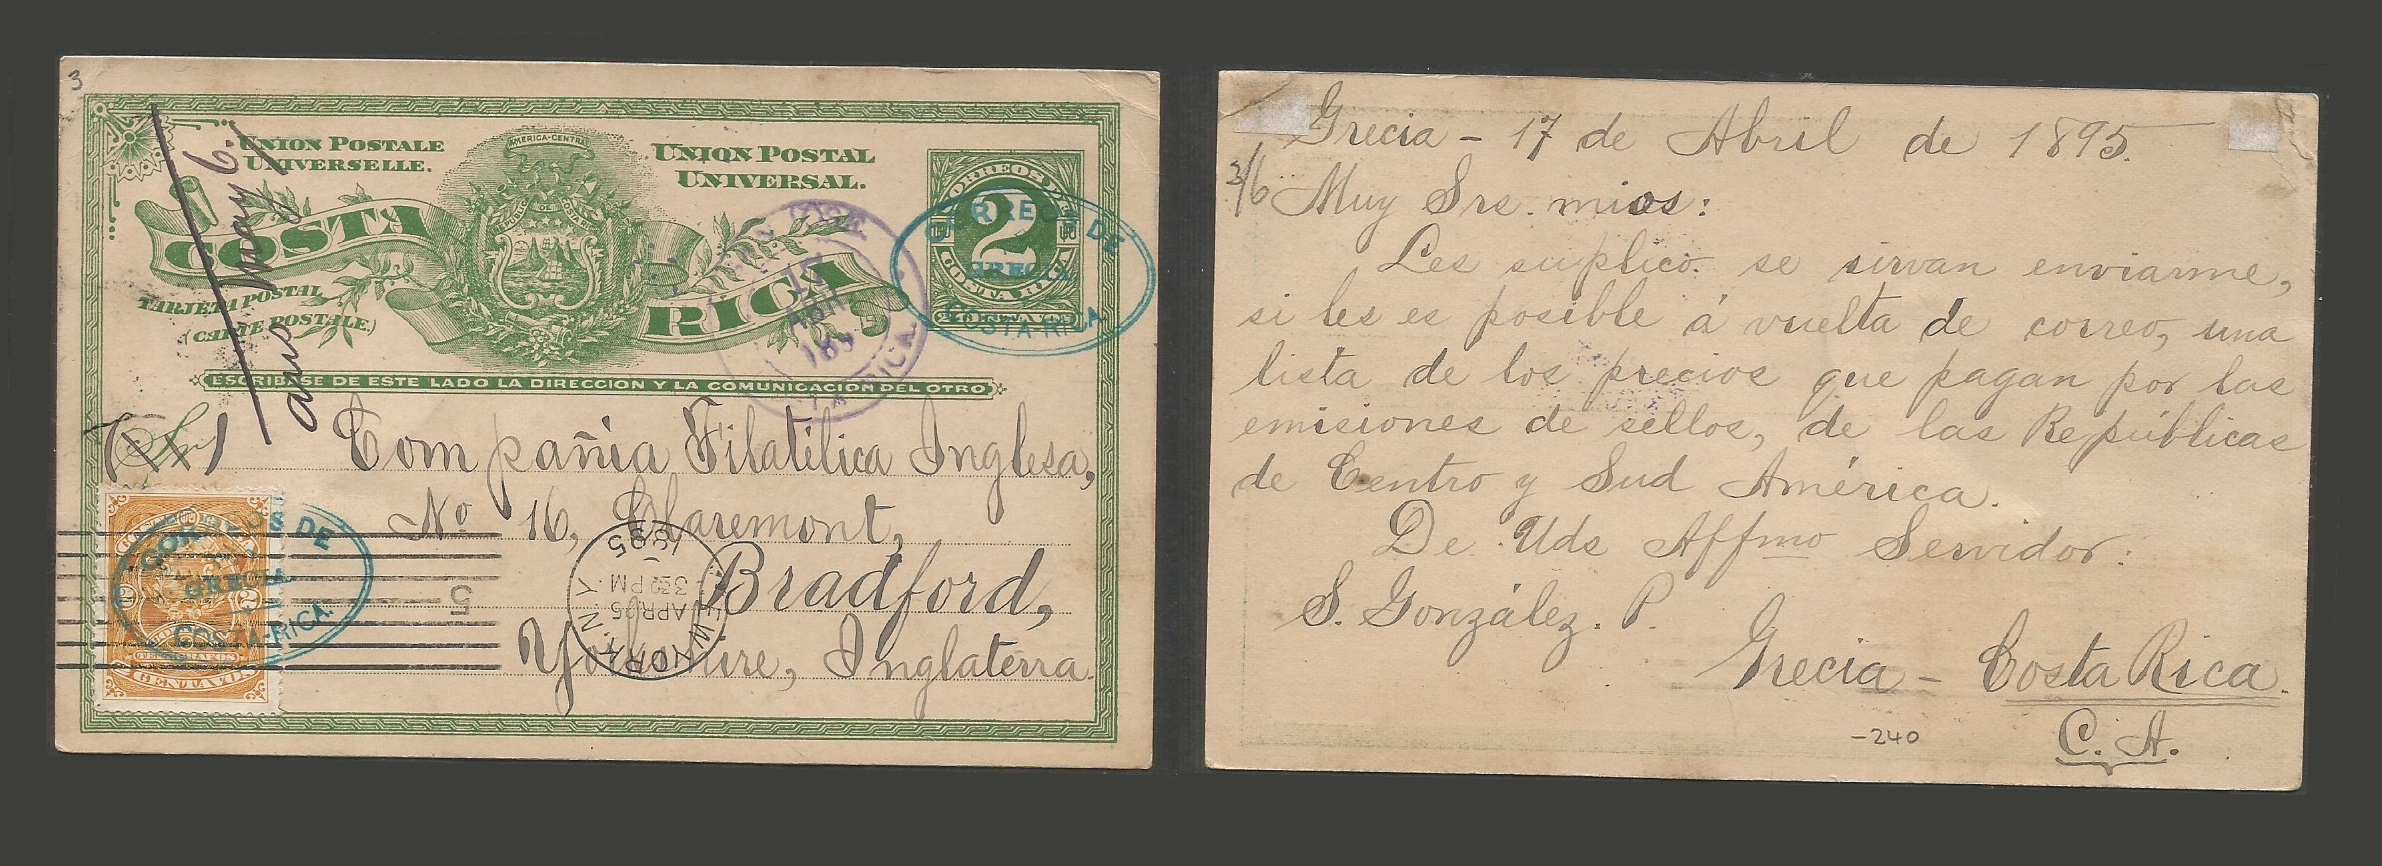 3
UNION POSTALE
UNIVERSELLE.
AMERICA-CENTRAL
UNION POSTAL
UNIVERSAL.
COSTA
RICA
CORREOS DE
2
CENTAVOS
TARJETA POSTAL
(CARTE POSTALE.)
ans May 6.
CORREOS DE
GRECIA
COSTA-RICA
17
ABR
189
ESCRIBASE DE ESTE LADO LA DIRECCION Y LA COMUNICACION DEL OTRO
Sr
Compañia Filatélica Inglesa,
No 16, Claremont,
Bradford,
Yorkshire, Inglaterra.
CORREOS DE
GRECIA
COSTA-RICA
2
CENTAVOS
5
NEW YORK, N.Y.
APR 25
3 30 PM
1895
Grecia - 17 de Abril de 1895.
3/6 Muy Srs. mios:
Les suplico se sirvan enviarme,
si les es posible á vuelta de correo, una
lista de los precios que pagan por las
emisiones de sellos, de las Repúblicas
de Centro y Sud América.
De Uds Affmo Servidor:
S. González. P.
Grecia - Costa Rica.
C. A.
-240